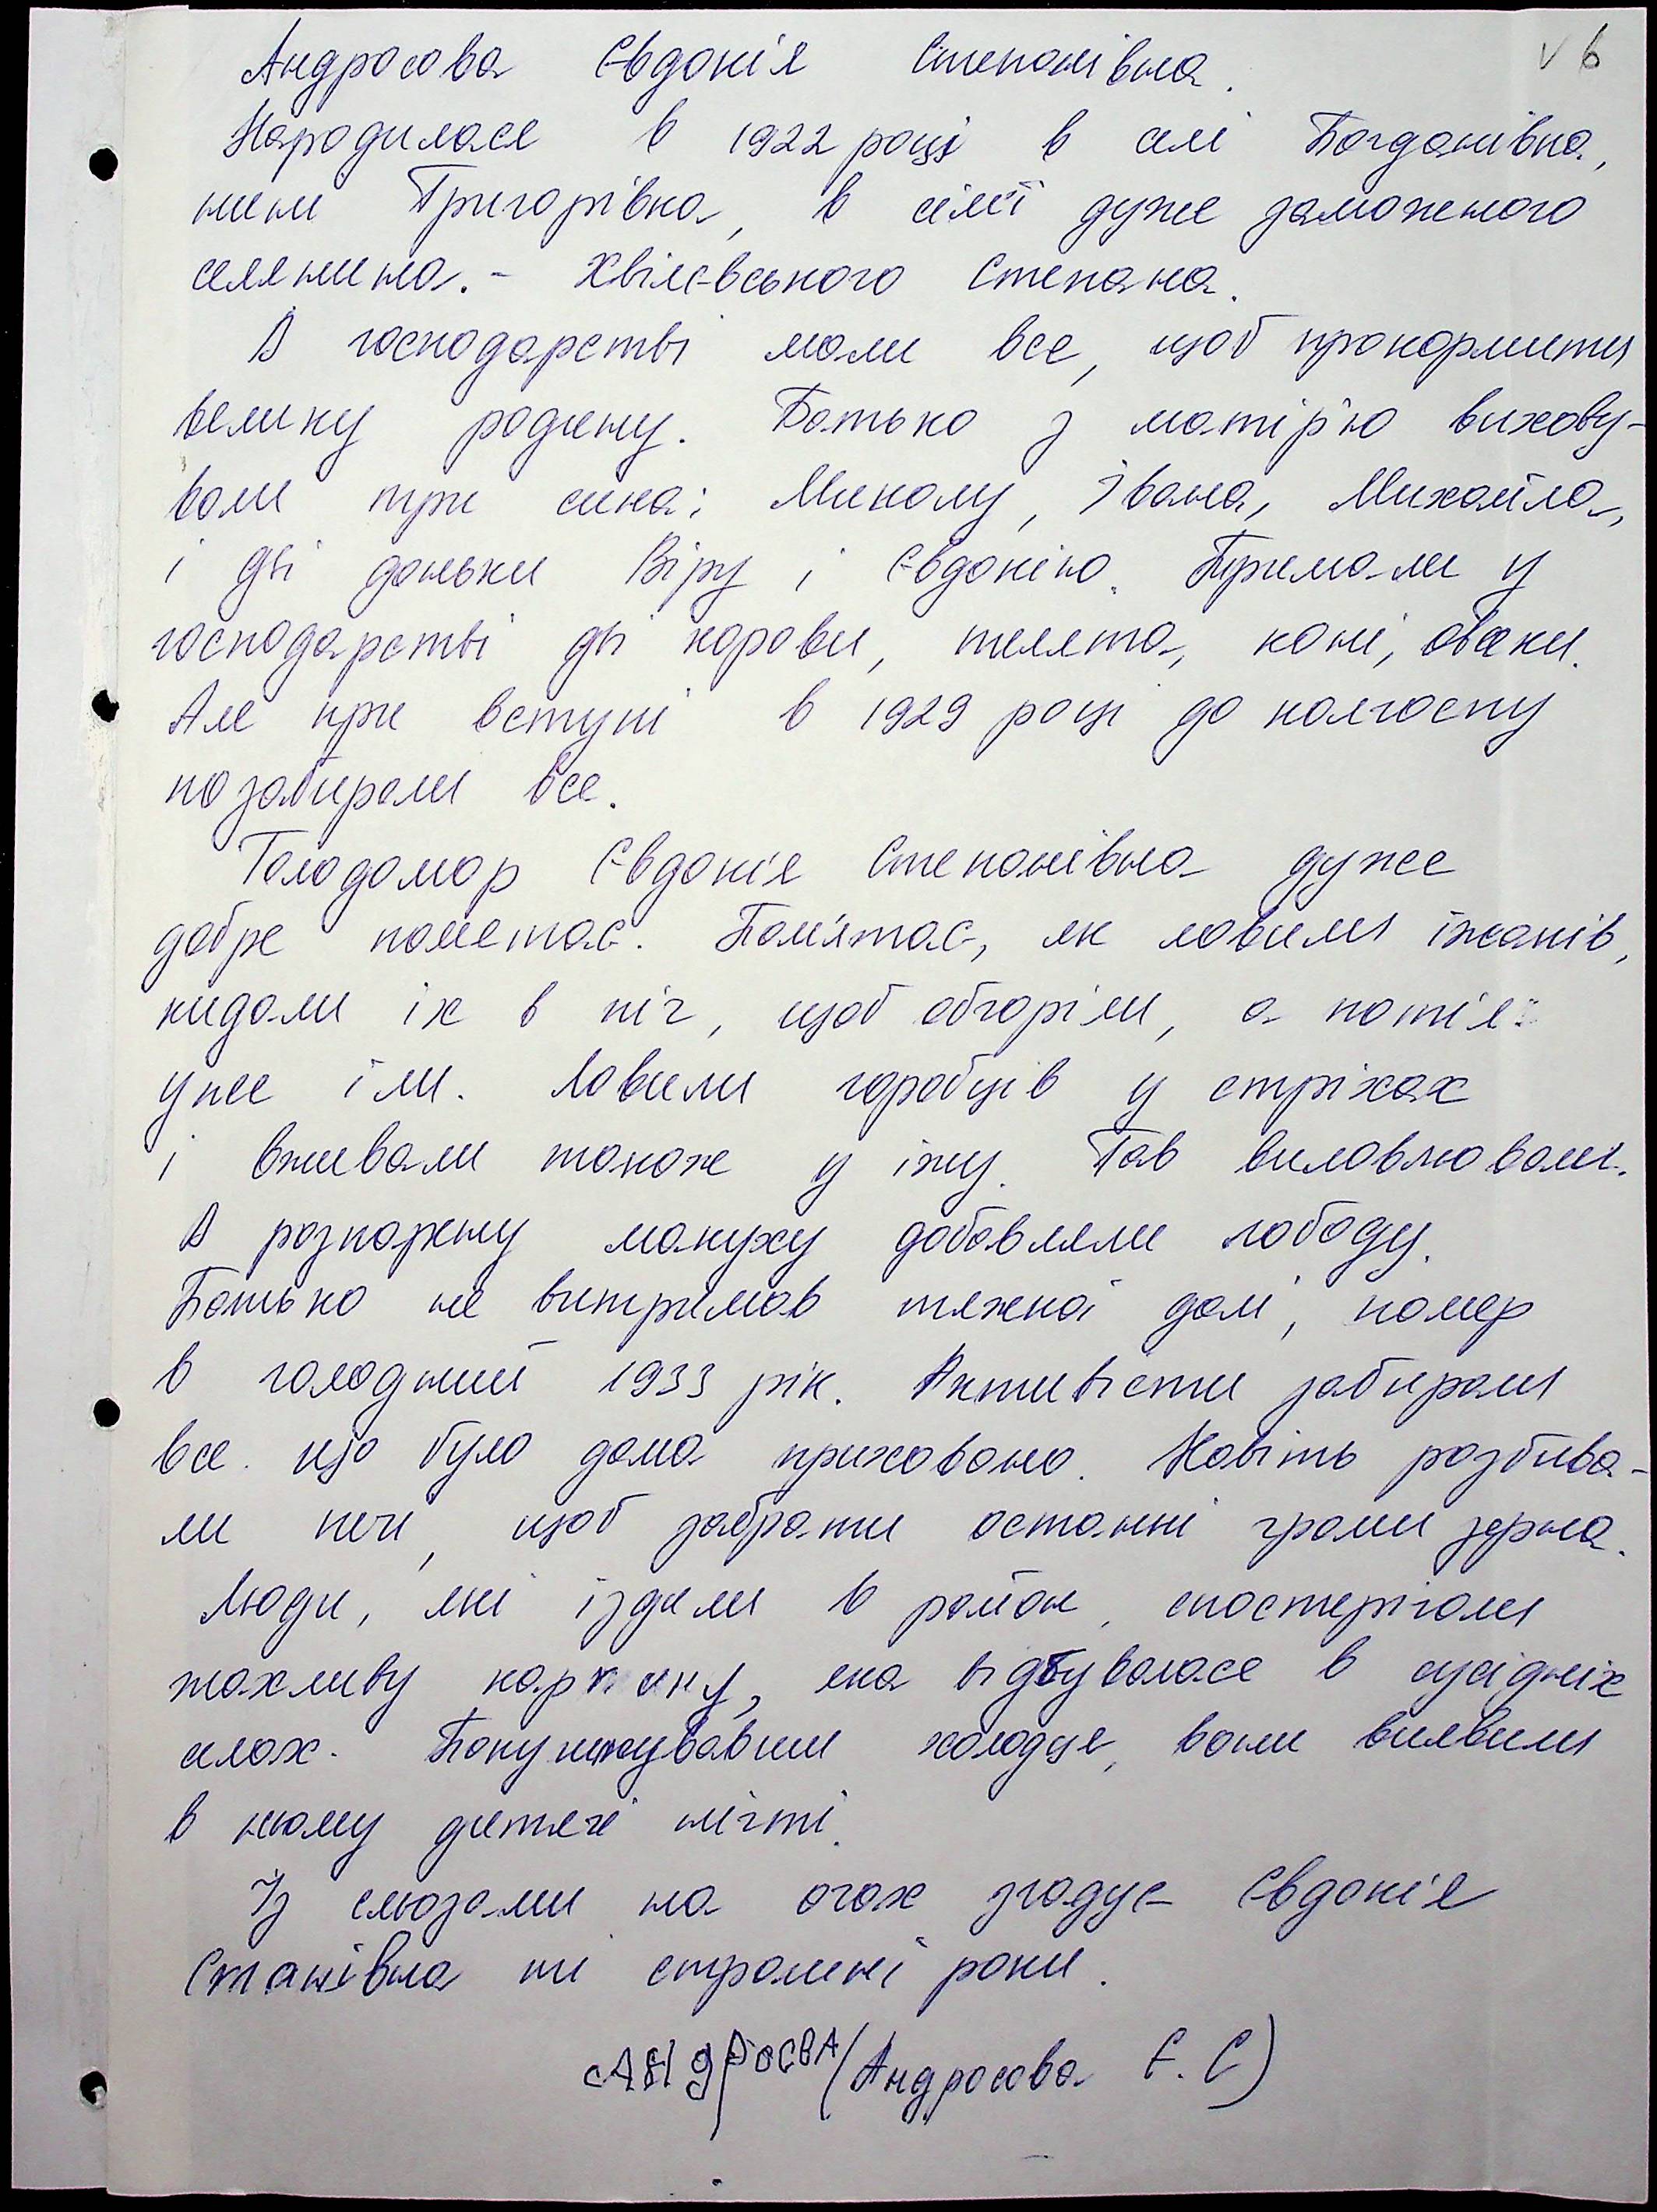 V6
Андросова Євдокія Степанівна.
Народилася в 1922 році в селі Богданівка,
нині Григорівка, в сім'ї дуже заможного
селянина. - Хвілєвського Степана.
В господарстві мали все, щоб прокормити
велику родину. Батько з матір'ю виховy-
вали три сина: Миколу, Івана, Михайла,
і дві доньки Віру і Євдокію. Тримали у
господарстві дві корови, телята, коні, овечки.
Але при вступі в 1929 році до колгоспу
позабирали все.
Голодомор Євдокія Степанівна дуже
добре памятає. Пам'ятає, як ловили їжаків,
кидали їх в піч, щоб обгоріли, а потім
уже їли. Ловили горобців у стріхах
і вживали також у їжу. Гав виловлювали.
В розпарену макуху добавляли лободу.
Батько не витримав тяжкої долі, помер
в голодний 1933 рік. Активісти забирали
все що було дома приховано. Навіть розбива-
ли печі, щоб забрати останні грами зерна.
Люди, які їздили в район, спостерігали
жахливу картину, яка відбувалася в сусідніх
селах. Покуштувавши холодця, вони виявили
в ньому дитячі нігті.
Із сльозами на очах згадує Євдокія
Станівна ті страшні роки.
АНдРОСВА (Андросова Є. С)